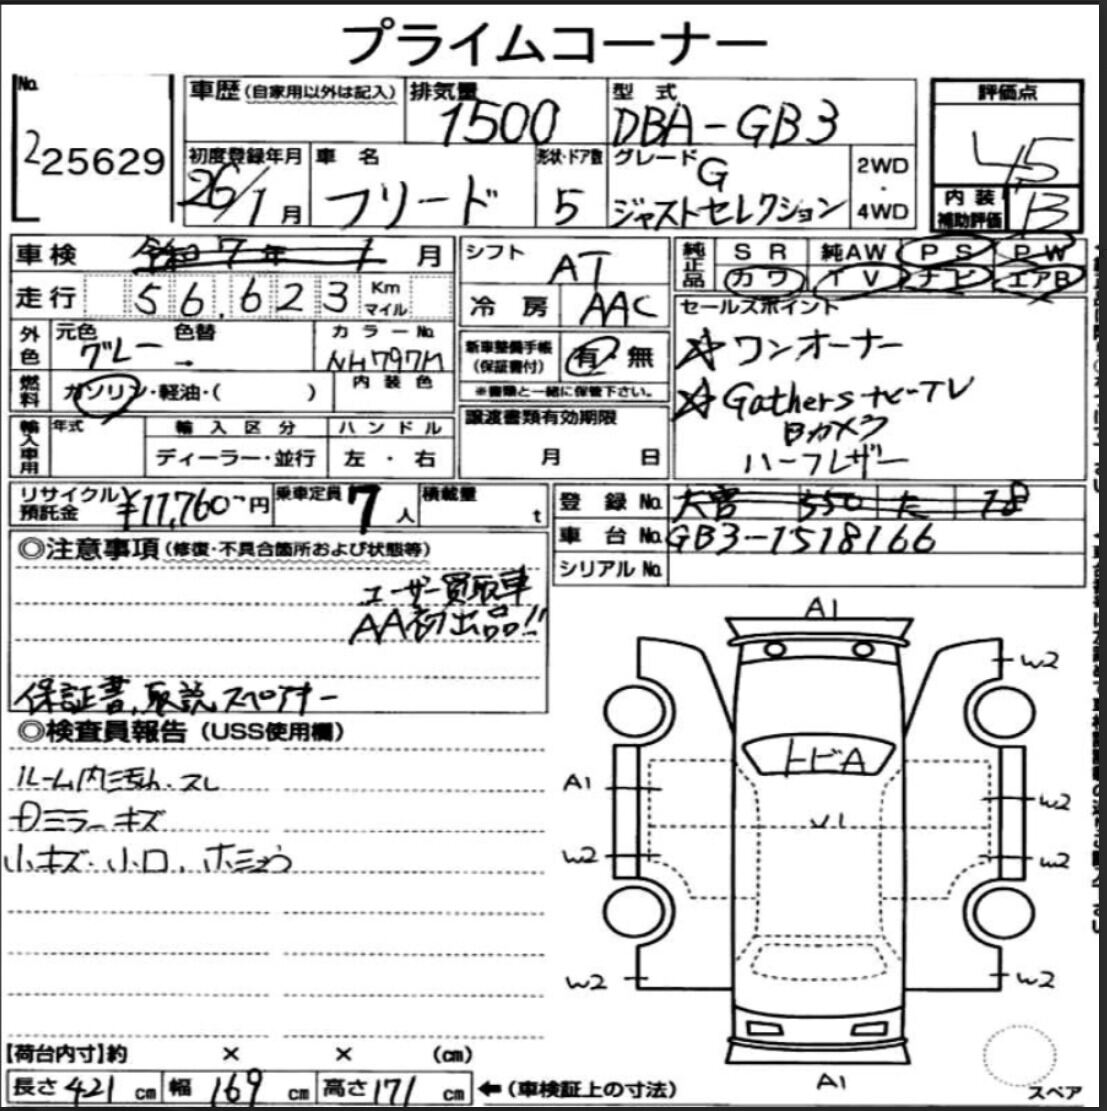 プライムコーナー
No.
225629
車歴(自家用以外は記入)
排気量
1500
型式
DBA-GB3
評価点
4.5
初度登録年月
26/1月
車名
フリード
形状・ドア数
5
グレード
G
ジャストセレクション
2WD
・
4WD
内装
補助評価
B
車検 令和7年1月
シフト
AT
純正品
SR 純AW PS PW
カワ TV ナビ エアB
走行 56,623 Km
マイル
冷房 AAC
セールスポイント
☆ワンオーナー
☆Gathersナビ-TV
Bカメラ
ハーフレザー
外色
元色 色替
グレー →
カラーNo.
NH797M
新車整備手帳
(保証書付)
有・無
※書類と一緒に保管下さい。
燃料
ガソリン・軽油・( )
内装色
譲渡書類有効期限
月 日
輸入車用
年式
輸入区分
ディーラー・並行
ハンドル
左・右
リサイクル
預託金 ¥11,760-円
乗車定員 7人
積載量
t
登録No. 大宮 550 た 18
車台No. GB3-1518166
シリアルNo.
◎注意事項(修復・不具合箇所および状態等)
ユーザー買取車
AA初出品!!
保証書、取説、スペアキー
◎検査員報告(USS使用欄)
ルーム内汚れ・スレ
Dミラーキズ
小キズ・小凹
A1
W2
トビA
A1
W2
W2
W2
W2
W2
W2
A1
スペア
【荷台内寸】約 × × (cm)
長さ421cm 幅169cm 高さ171cm ←(車検証上の寸法)